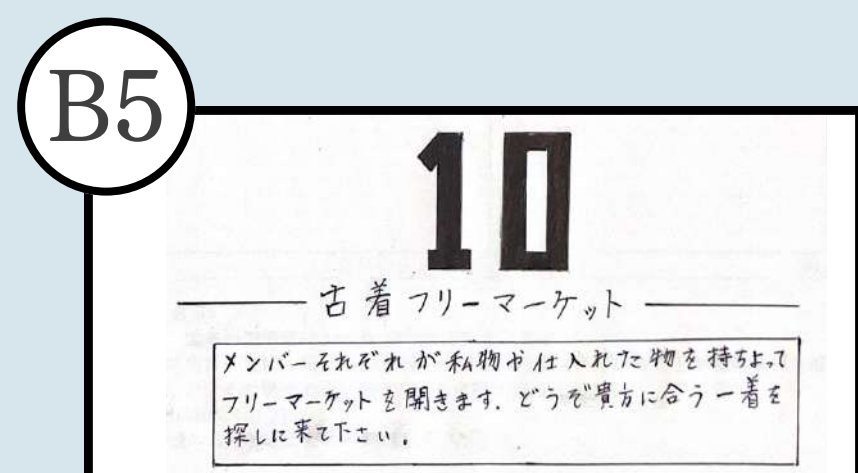 B5
10
古着フリーマーケット
メンバーそれぞれが私物や仕入れた物を持ちよって
フリーマーケットを開きます. どうぞ貴方に合う一着を
探しに来て下さい.